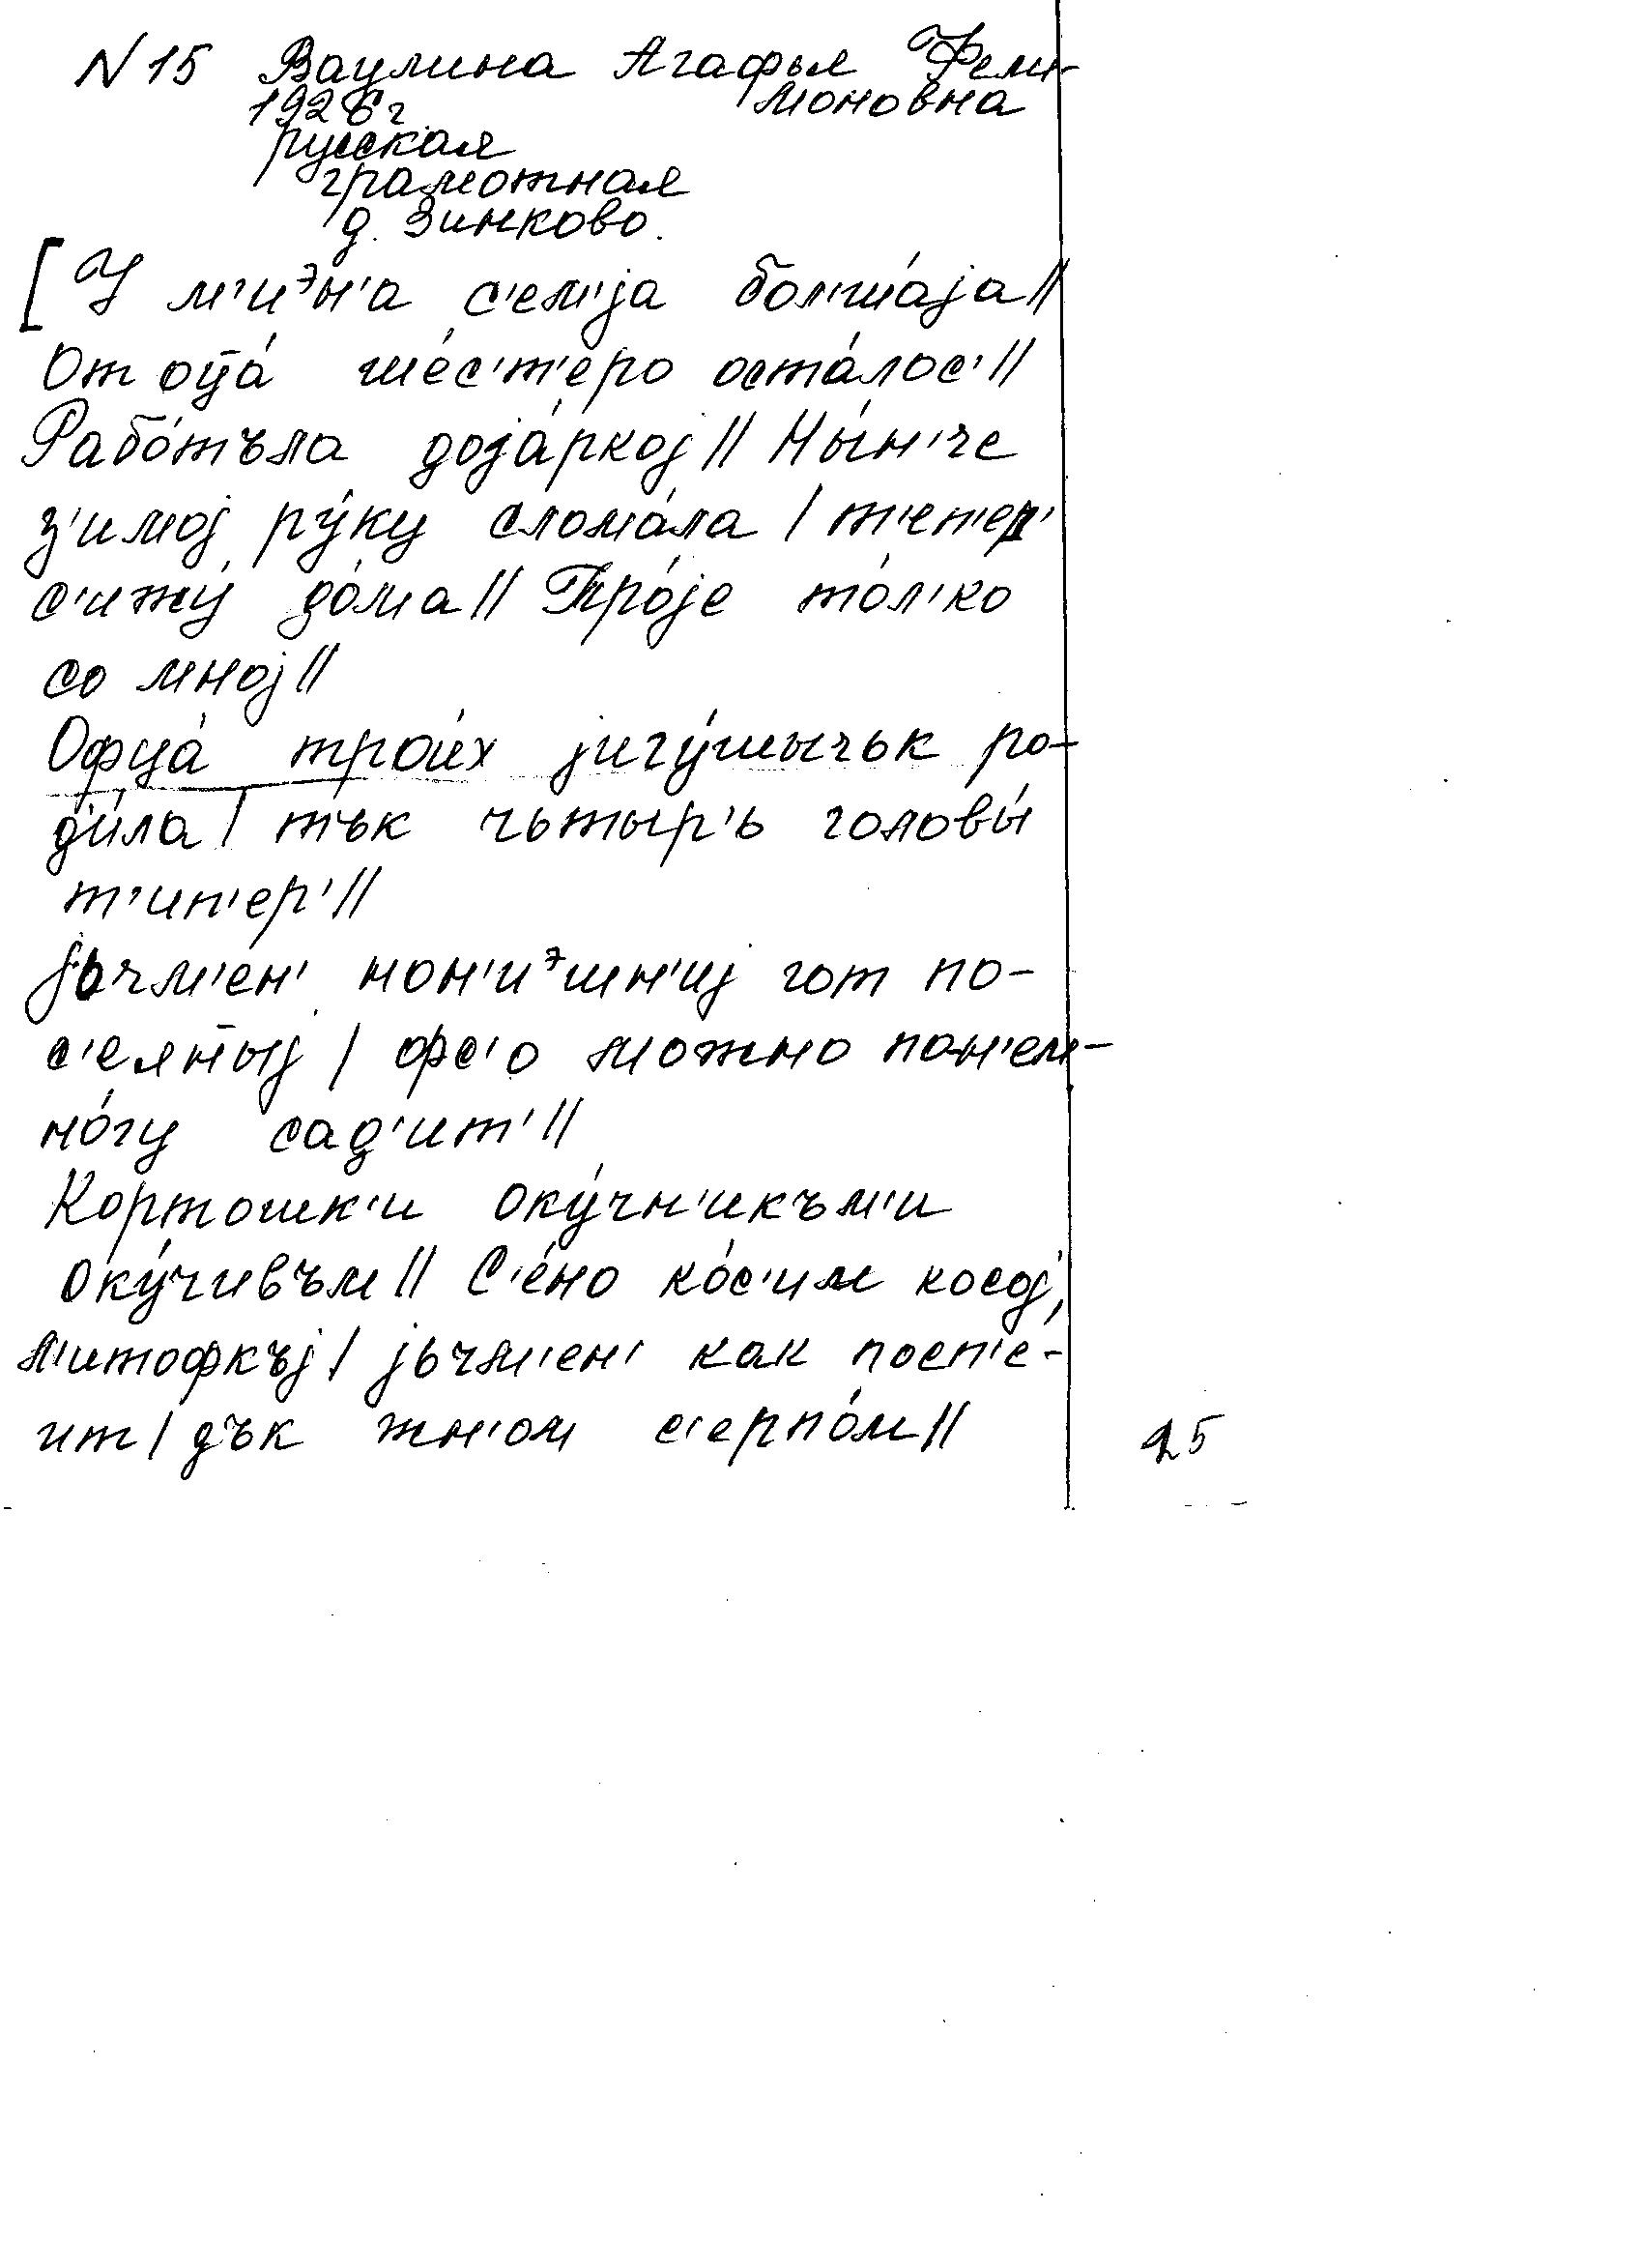 N 15 Ваулина Агафья Фели-
1926 г моновна
русская
грамотная
д. Зинково.
[У м'иэн'а с'ем'jа бол'шájа//
От оц̄á шéс'т'еро остáлос'//
Рабóтъла доjáркоj// Ны́н'че
з'имоj рýку сломáла / т'еп'ер'
с'ижý дóма// Трójе тóл'ко
со мноj//
Офцá троúх jигýшычък ро-
дúла / тък чьтыр'ь головы́
т'ип'ер'//
jьчм'éн' нон'иэшн'иj гот по-
с'еян̄ыj / фс'о можно пон'ем-
нóгу сад'ит'//
Кортошк'и окýчн'икъм'и
окýчивъм// С'éно кóс'им косоj,
л'итофкъj / jьчм'ен' как посп'е-
ит / дък жн'ом с'ерпóм//
25